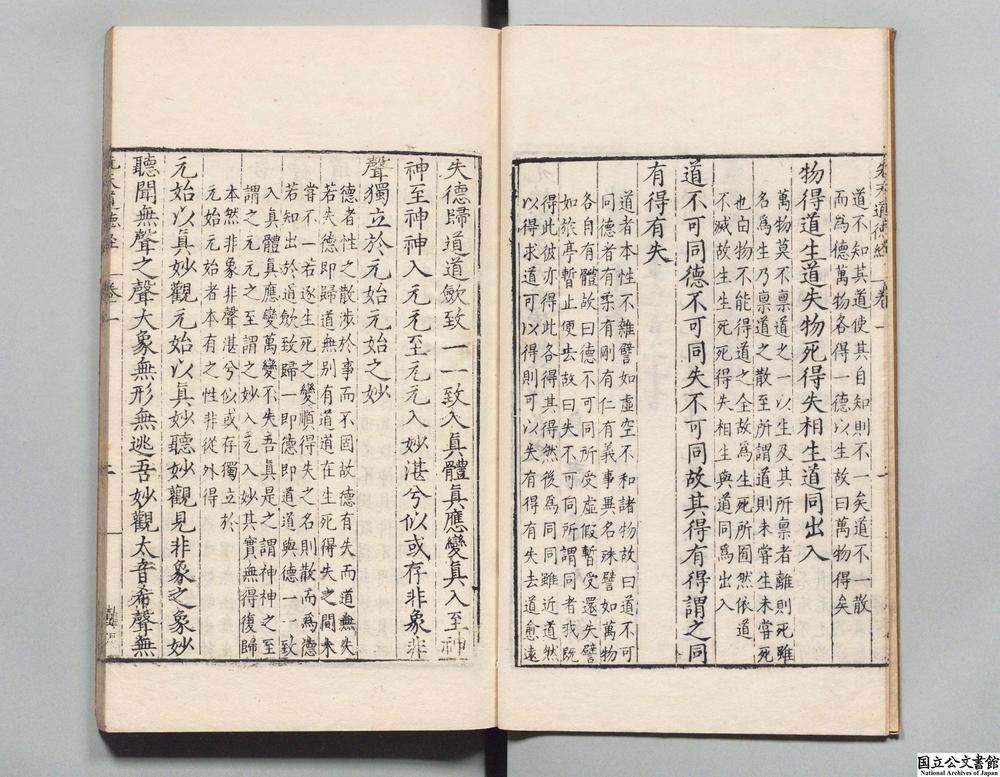 道不知其道使其自知則不一矣道不一散
而為德萬物各得一德以生故曰萬物得矣
物得道生道失物死得失相生道同出入
萬物莫不禀道之一以生及其所禀者離則死雖
名為生乃禀道之散至所謂道則未嘗生未嘗死
也白物不能得道之全故為生死所囿然依道
不滅故生生死死得失相生與道同為出入
道不可同德不可同失不可同故其得有得謂之同
有得有失
道者本性不雜譬如虛空不和諸物故曰道不可
同德者有柔有剛有仁有義事異名殊譬如萬物
各自有體故曰德不可同所受虛假暫受還失譬
如旅亭暫止便去故曰失不可同所謂同者我既
得此彼亦得此各得其得然後為同同雖近道然
以得求道可以得則可以失有得有失去道愈遠
失德歸道道歛致一一致入眞體眞應變眞入至神
神至神神入元元至元元入妙湛兮似或存非象非
聲獨立於元始元始之妙
德者性之散涉於事而不固故德有失而道無失
若失德即歸道無别有道道在生死得失之間未
嘗不一若逐生死之變順得失之名則散而為德
若知出於道歛致歸一即德即道道與德一一致
入眞體眞應變萬變不失吾眞是之謂神神之至
謂之元元之至謂之妙入元入妙其實無得復歸
本然非象非聲湛兮似或存獨立於
元始元始者本有之性非從外得
元始以眞妙觀元始以眞妙聽妙觀見非象之象妙
聽聞無聲之聲大象無形無逃吾妙觀太音希聲無
国立公文書館
National Archives of Japan